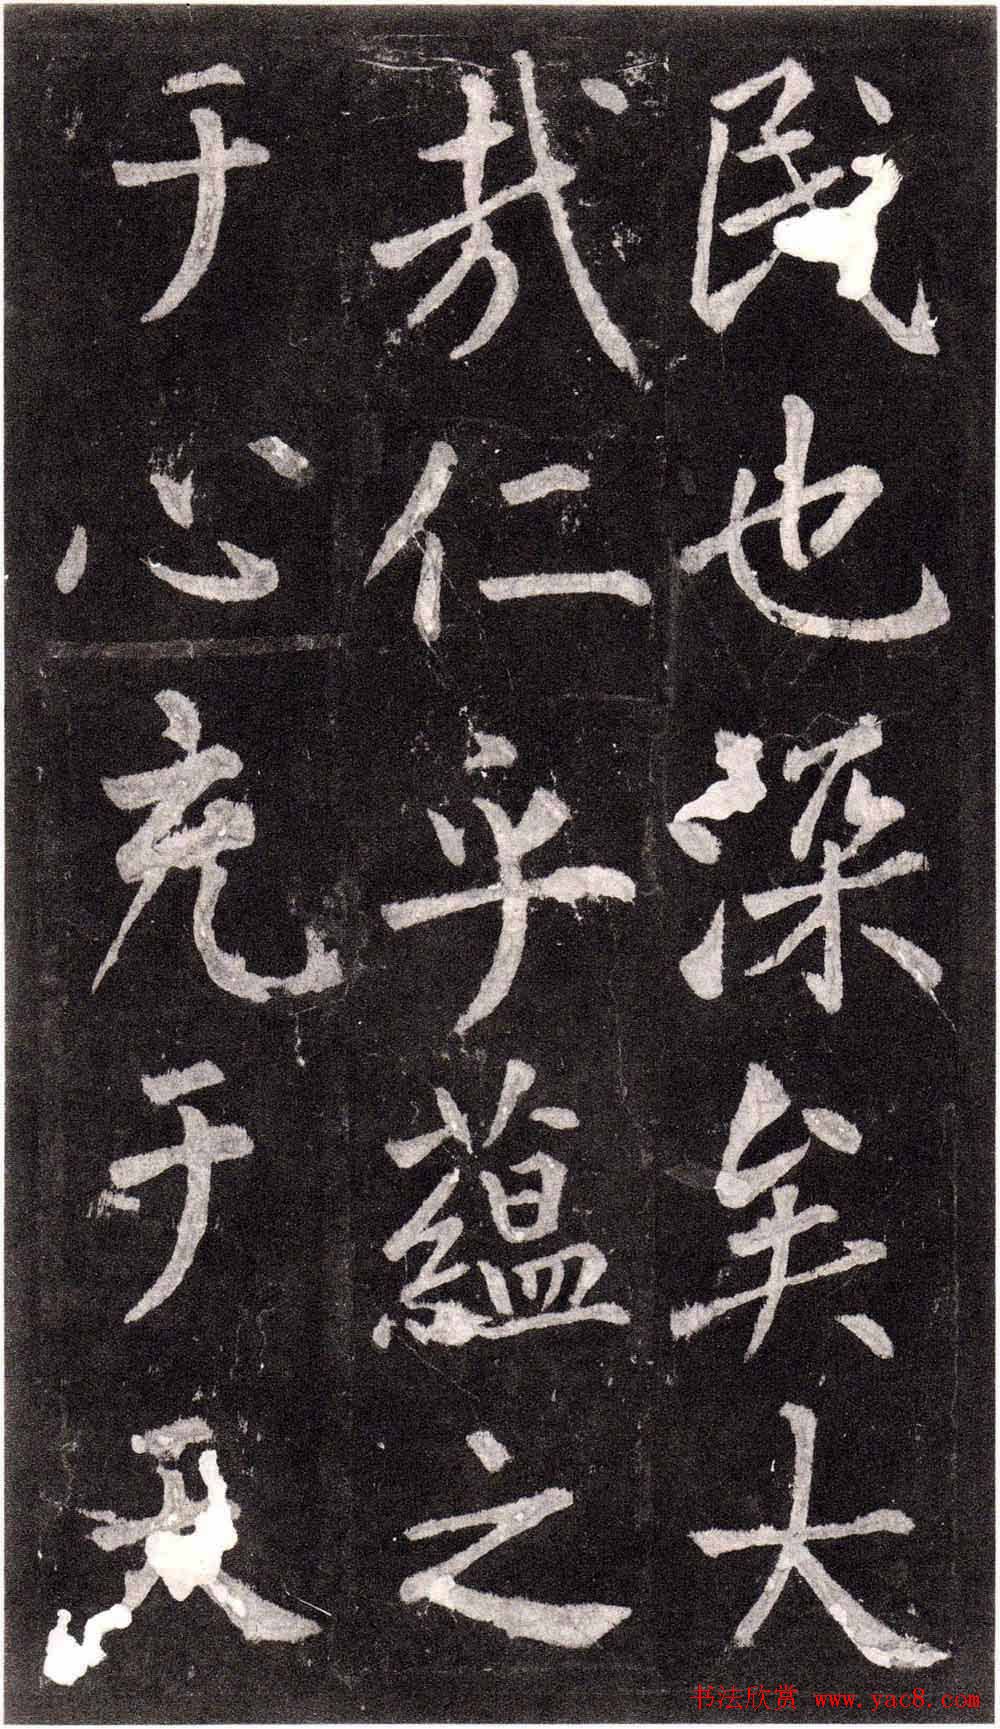 民也深矣大
哉仁乎蕴之
于心充于天
书法欣赏 www.yac8.com